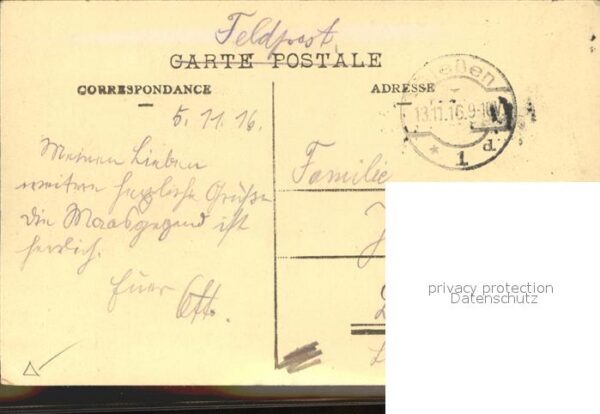 Feldpost.
CARTE POSTALE
CORRESPONDANCE
ADRESSE
ießen
13.11.16.9-10V
* 1 d
5. 11. 16.
Meinen Lieben
weitere herzliche Grüße
die Maasgegend ist
herrlich.
Euer Otto.
Familie
privacy protection
Datenschutz